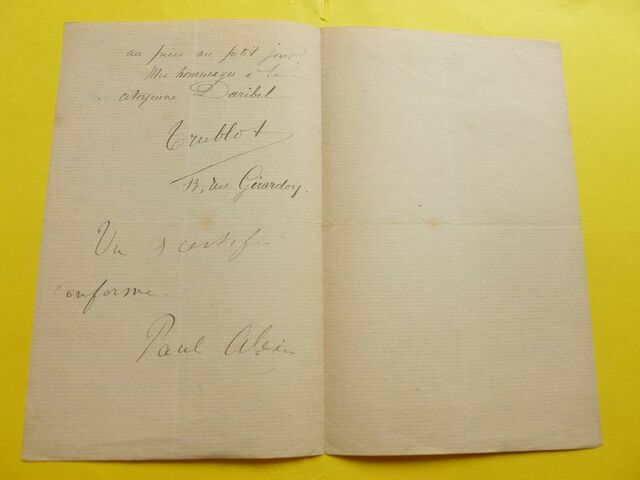 au petit jour.
Mes hommages à la
citoyenne Daribel
Trublot
13, rue Girardon.
Vu & certifié
conforme.
Paul Alexis